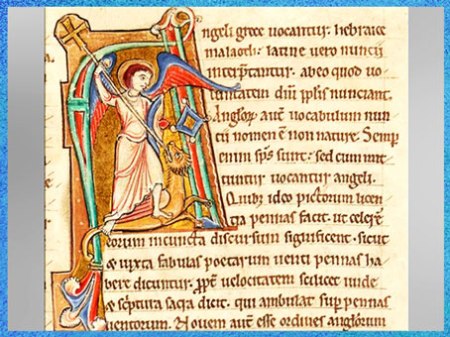 Angeli grece uocantur. hebraice
malaoth. latine uero nuncii
interp̄tantur. ab eo quod uo
luntatem dn̄i ip̄lis nunciant.
Angl̄oꝝ aut̄ uocabulum nun
cii nomen ē non nature. Semꝑ
enim sp̄s sunt. sed cum mit
tuntur uocantur angeli.
Quibꝫ ideo pictorum licen
tia pennas facit. ut celerē
eorum in cuncta discursum significent. sicut
& iuxta fabulas poetarum uenti pennas ha
bere dicuntur. ꝓpt̄ uelocitatem scilicet unde
& sc̄ptura sacra dicit. qui ambulat sup̄ pennas
uentorum. Nouem aut̄ esse ordines angl̄orum